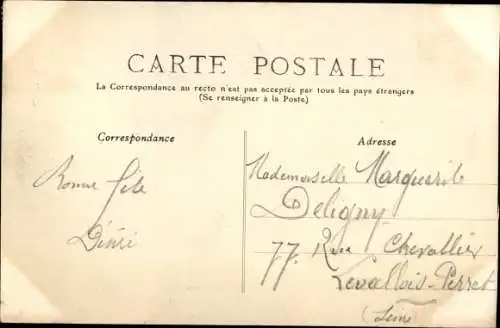 CARTE POSTALE
La Correspondance au recto n'est pas acceptée par tous les pays étrangers
(Se renseigner à la Poste)
Correspondance
Bonne fête
Adresse
Mademoiselle Marguerite
Deligny
77. Rue Chevallier
Levallois-Perret
(Seine